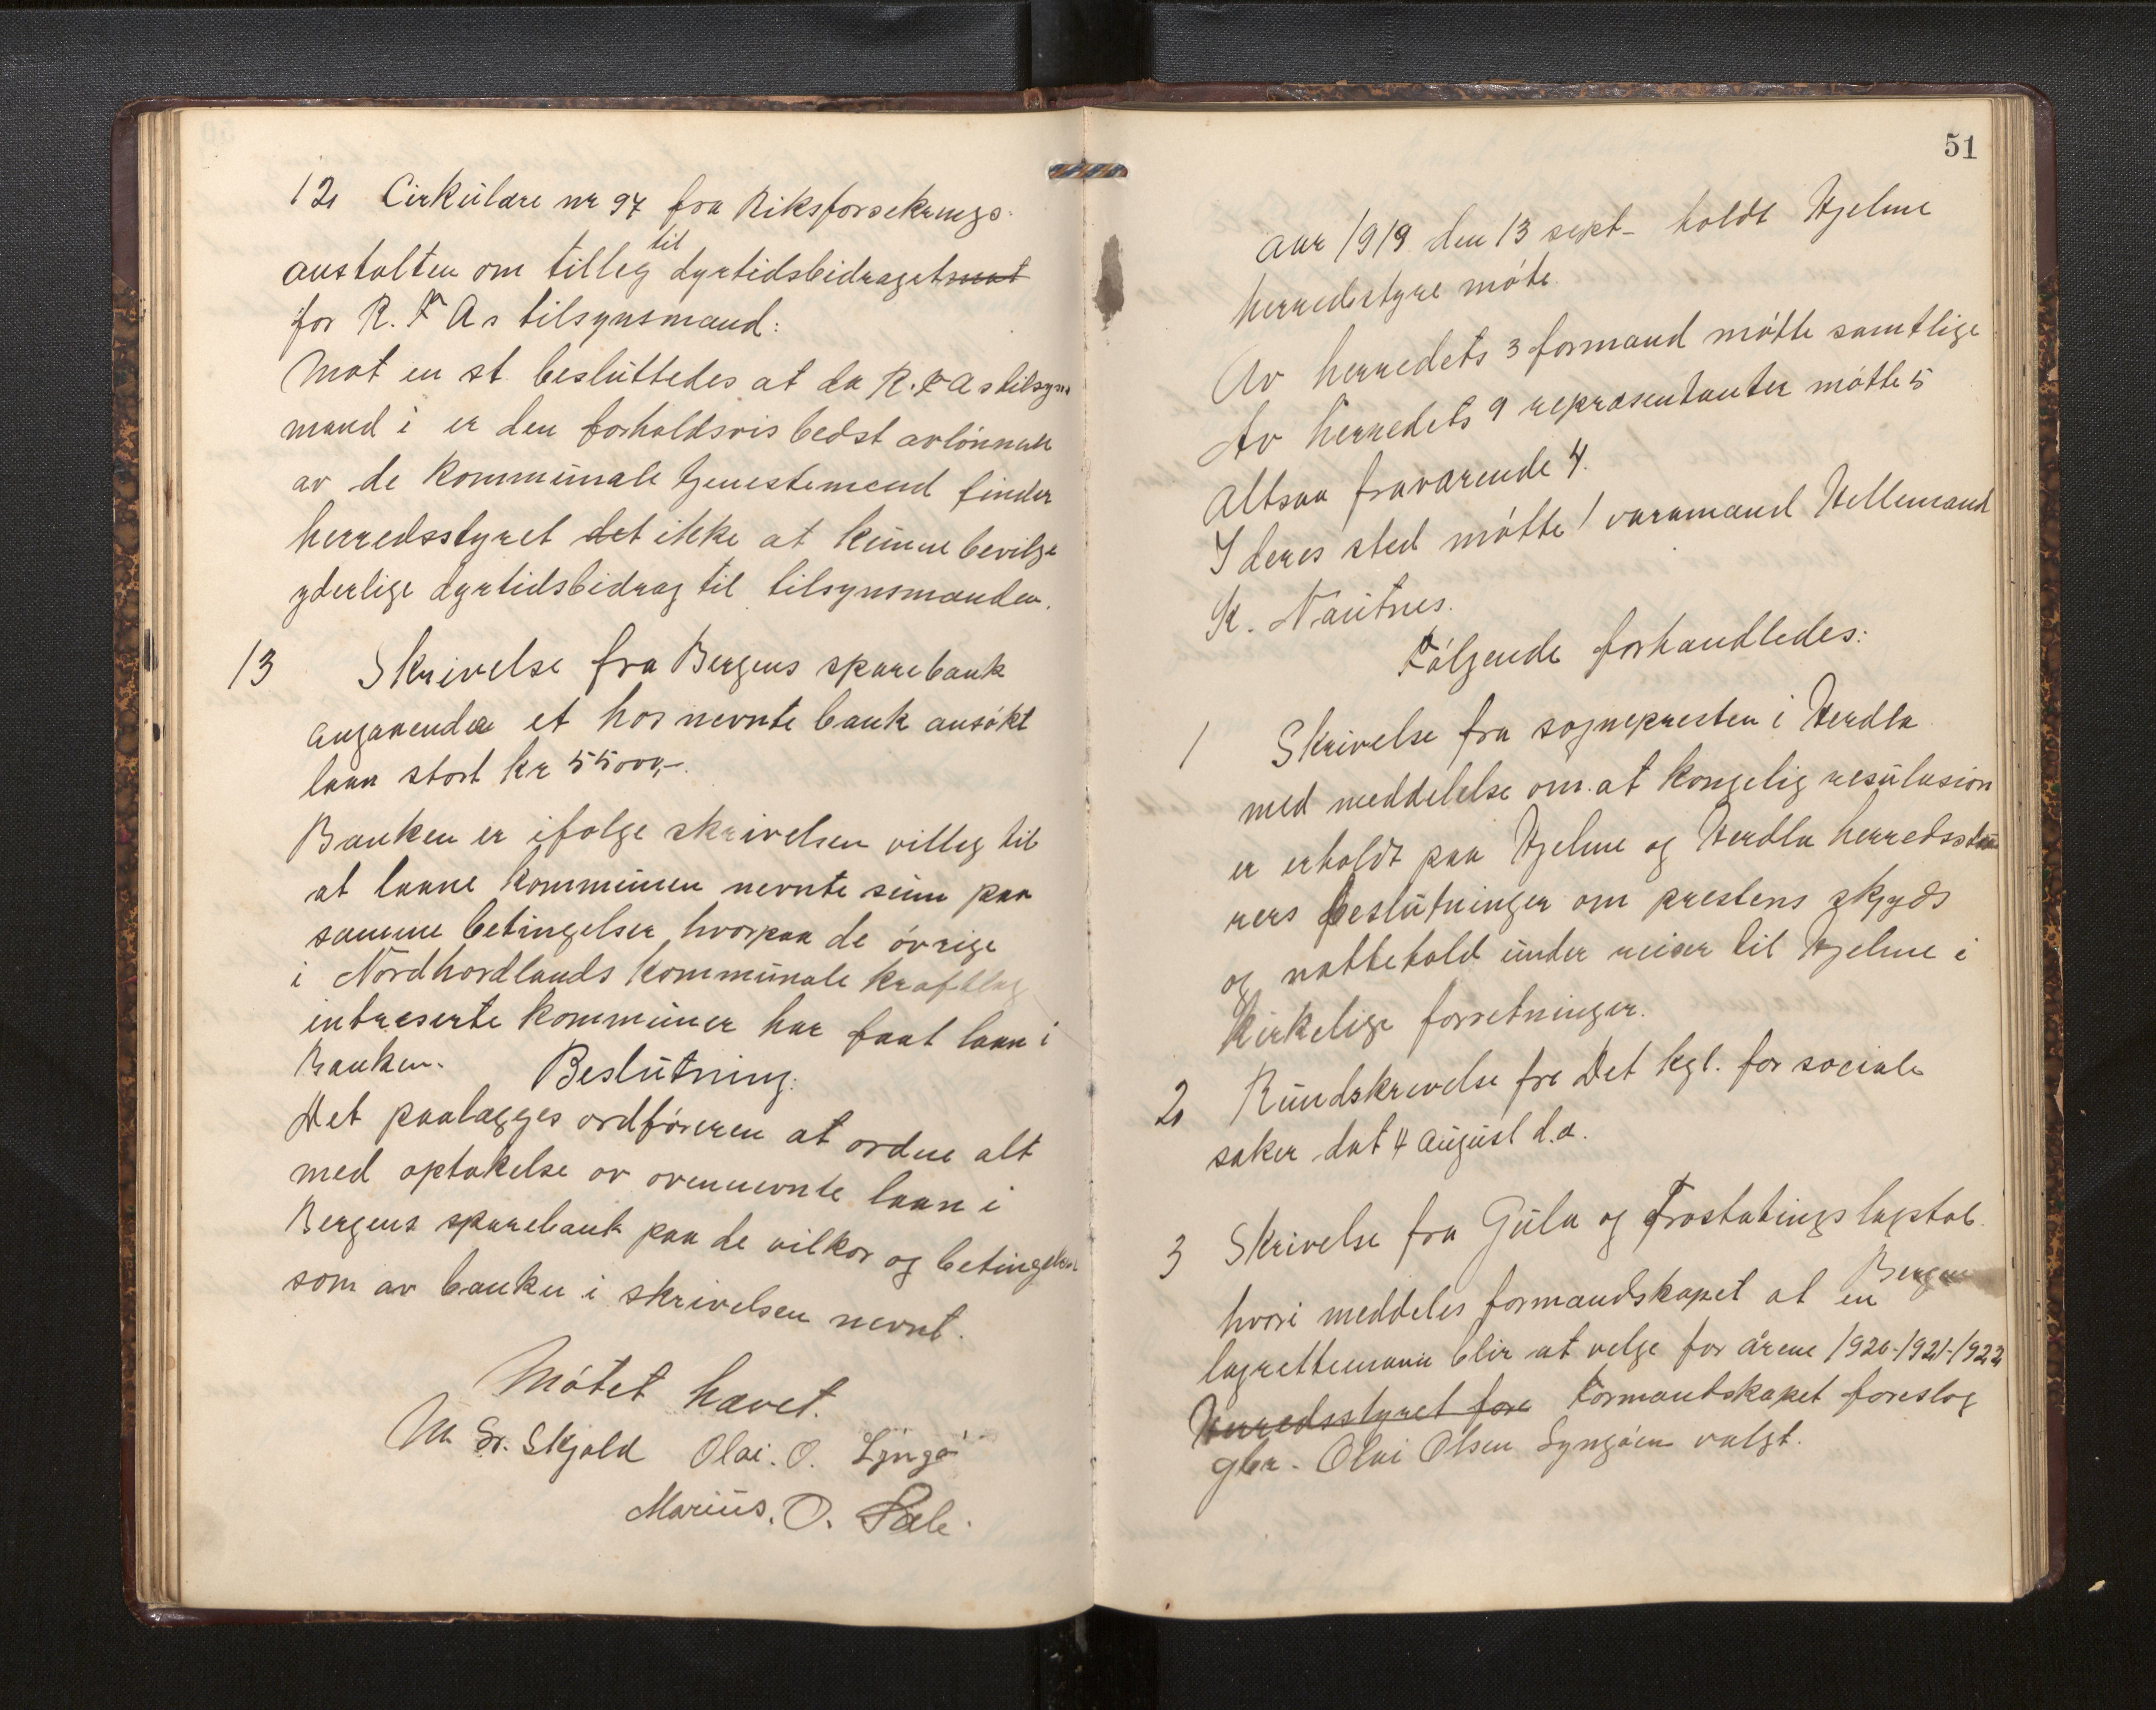 12 Cirkulære nr 97 fra Riksforsekrings-
anstalten om tilleg til dyrtidsbidraget
for R. F As tilsynsmand:
Mot en st besluttedes at da R. F As tilsyns
mand i er den forholdsvis bedst avlönnede
av de kommunale tjenestemend finder
herredsstyret det ikke at kunne bevilge
yderlige dyrtidsbidrag til tilsynsmanden.
13 Skrivelse fra Bergens sparebank
angaaende et hos nevnte bank ansökt
laan stort kr 55000,-.
Banken er ifolge skrivelsen villeg til
at laane kommunen nevnte sum paa
samme betingelser hvorpaa de övrige
i Nordhordlands kommunale kraftlag
intreserte kommuner har faat laan i
Banken. Beslutning:
Det paalægges ordföreren at ordne alt
med optakelse av ovennevnte laan i
Bergens sparebank paa de vilkor og betingelser
som av banken i skrivelsen nevnt.
Mötet hævet.
M Sr. Skjold Olai. O. Lyngö
Marius. O. Sæle.
51
Aar 1919 den 13 sept- holdt Hjelme
herredsstyre möte.
Av herredets 3 formænd mötte samtlige
Av herredets 9 repræsentanter mötte 5
Altsaa fraværende 4.
I deres sted mötte 1 varamand Hellemand
K. Nautnes.
Fölgende forhandledes:
1 Skrivelse fra sognepresten i Herdla
med meddelelse om at kongelig resulusion
er erholdt paa Hjelme og Herdla herredssty
rers beslutninger om prestens skyds
og nattehold under reiser til Hjelme i
kirkelige forretninger.
2 Rundskrivelse fra Det kgl. for sociale
saker dat 4 August d.a.
3 Skrivelse fra Gula og Frostatings lagstol
Bergen
hvori meddeles formandskapet at en
lagrettemann blir at velge for årene 1920-1921-1922
Herredsstyret fore Formandskapet foreslog
gbr. Olai Olsen Lyngöen valgt.